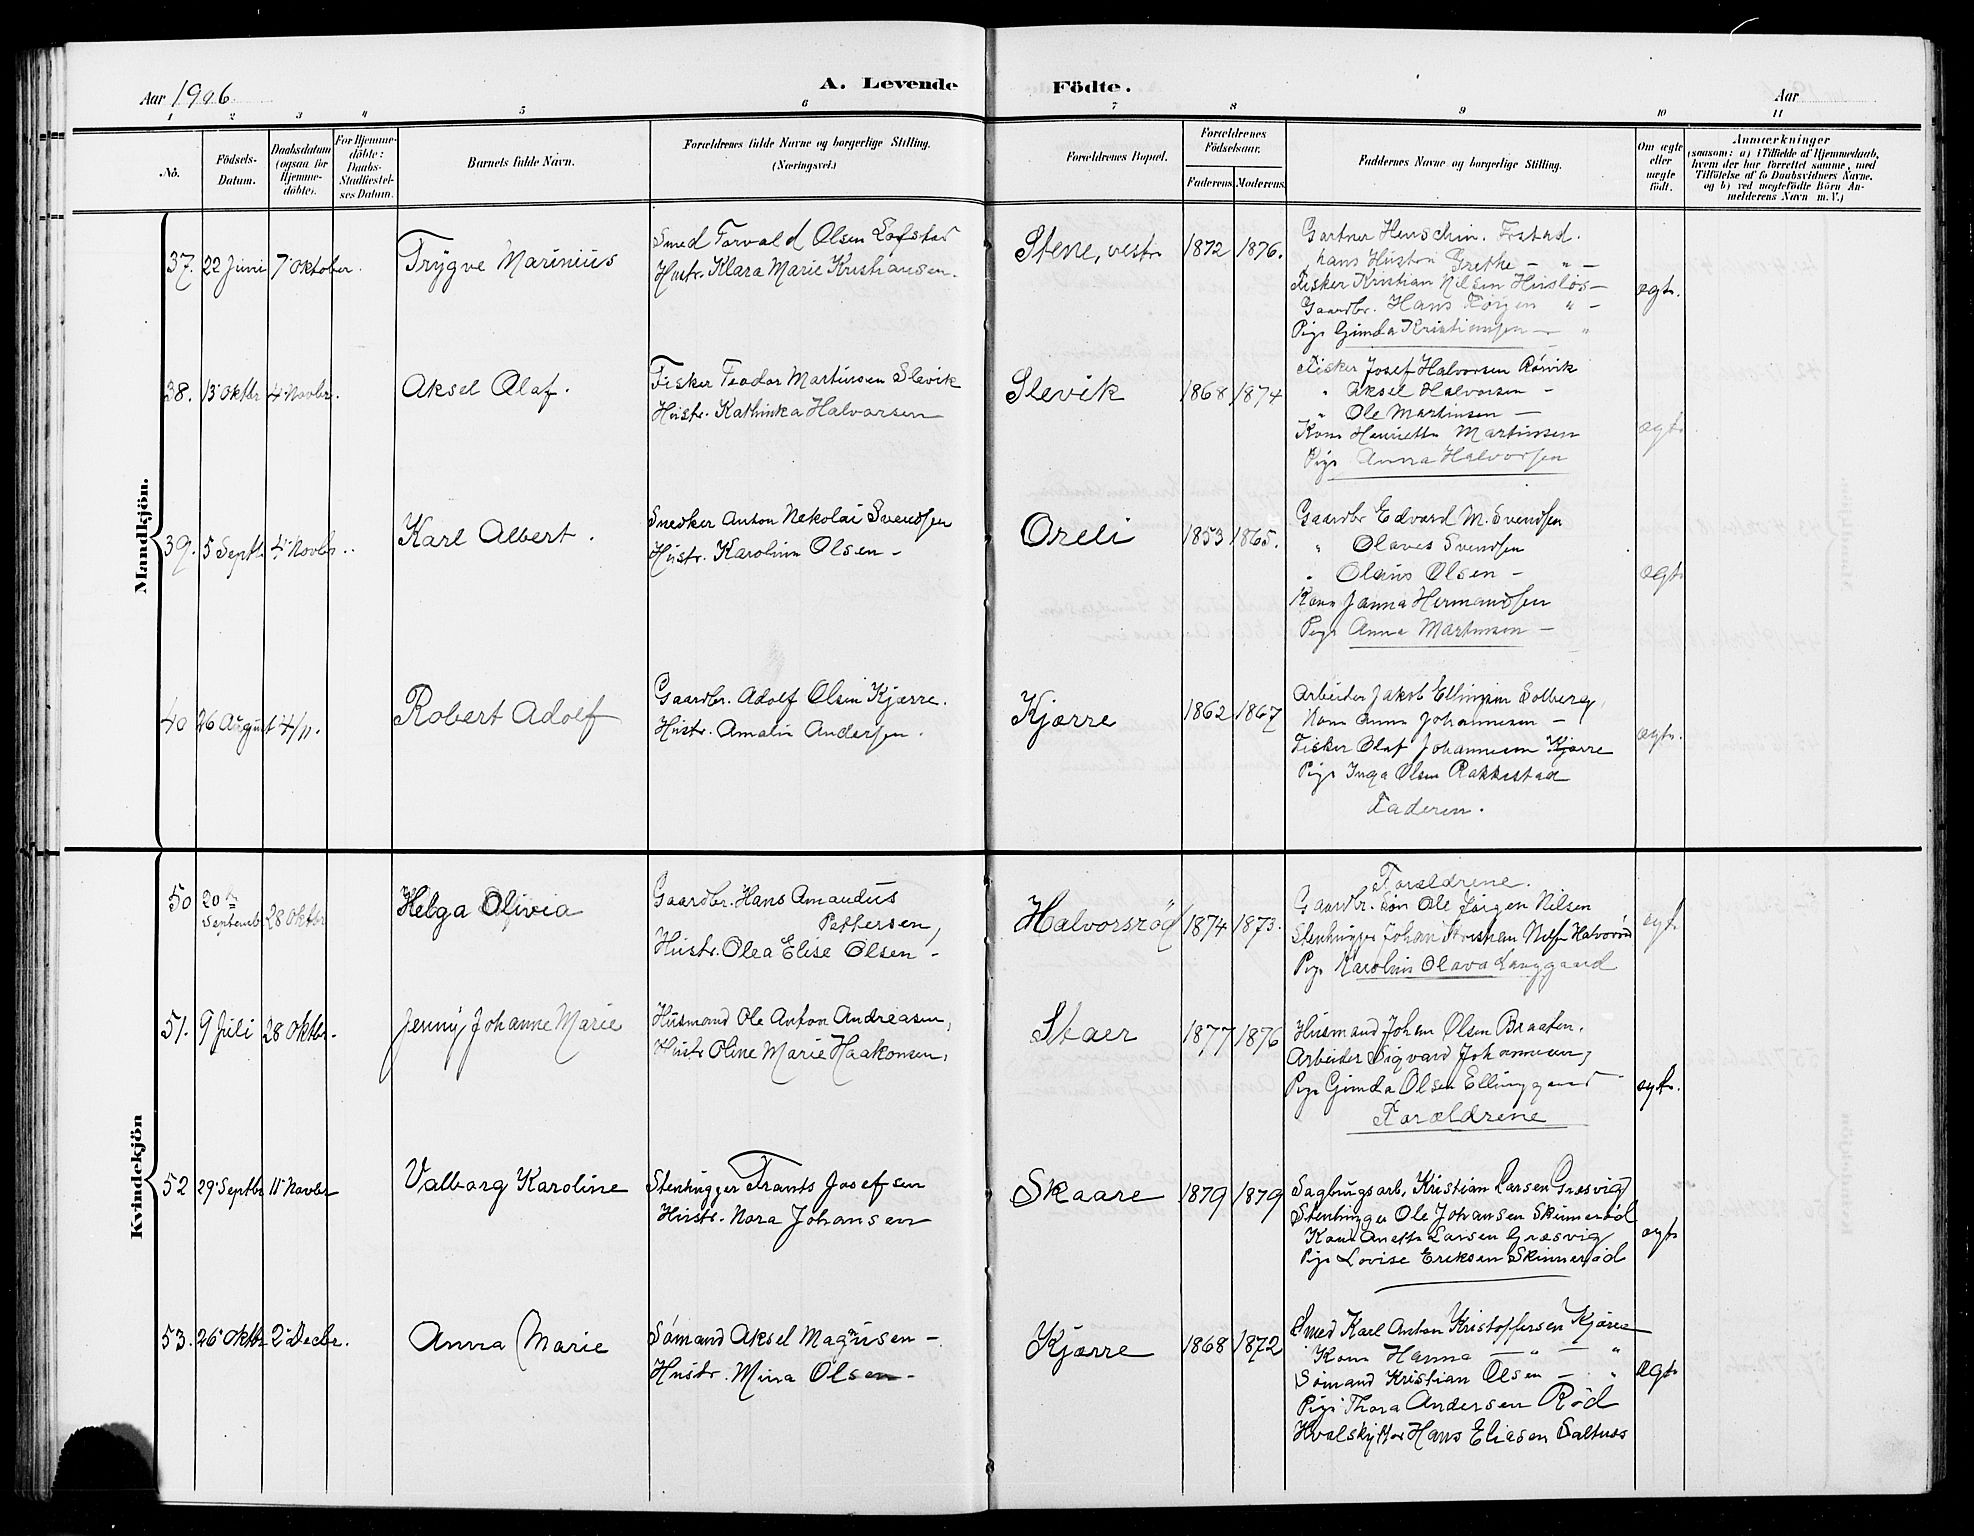 Aar 1906.
A. Levende Födte.
Aar
1 2 3 4 5 6 7 8 9 10 11
No.
Födsels-Datum.
Daabsdatum (ogsaa for Hjemme-döbte).
For Hjemme-döbte: Daabs-Stadfæstel-ses Datum.
Barnets fulde Navn.
Forældrenes fulde Navne og borgerlige Stilling. (Næringsvei.)
Forældrenes Bopæl.
Forældrenes Födselsaar.
Faderens. Moderens.
Faddernes Navne og borgerlige Stilling.
Om ægte eller uægte födt.
Anmærkninger
(saasom: a) i Tilfælde af Hjemmedaab, hvem der har forrettet samme, med Tilföielse af to Daabsvidners Navne. og b) ved uægtefödte Börn An-melderens Navn m. V.)
Mandkjön.
37. 22 Juni 7' Oktober. Trygve Marinius
Smed Torvald Olsen Lofstad
Hustr. Klara Marie Kristiansen.
Stene, vestr. 1872 1876.
Gartner Henschin. Frstad.
hans Hustru Grethe - " -
Fisker Kristian Nilsen Huslös -
Gaardbr. Hans Jörgen " -
Pige Gimda Kristiansen - "
ægte.
38. 13' Oktbr 4' Novbr. Aksel Olaf.
Fisker Teodor Martinsen Slevik
Hustr. Kathinka Halvorsen
Slevik 1868 1874
Fisker Josef Halvorsen Rörvik
" Aksel Halvorsen -
" Ole Martinsen -
Kone Henriette Martinsen
Pige Anna Halvorsen
ægte
39. 5 Septb. 4' Novbr. Karl Albert.
Snedker Anton Nekolai Svendsen
Hustr. Karoline Olsen -
Oreli 1853 1865.
Gaardbr Edvard M. Svendsen
" Olaves Svendsen
" Olaus Olsen -
Kone Janna Hermandsen
Pige Anna Martinsen -
ægte
40 26 August 4/11. Robert Adolf
Gaardbr. Adolf Olsen Kjærre.
Hustr. Amalie Andersen.
Kjærre 1862 1867
Arbeider Jakob Ellingsen Solberg,
Kone Anna Johannesen -
Fisker Olaf Johannesen Kjærre
Pige Inga Olsen Rakkestad
Faderen.
ægte.
Kvindekjön
50 20de Septemb. 28 Oktbr Helga Olivia
Gaardbr. Hans Amandus
Pettersen,
Hustr. Olea Elise Olsen -
Halvorsröd 1874 1873.
Forældrene.
Gaardbr. sön Ole Jörgen Nilsen
Stenhugger Johan Kristian Nilsen Halvorsröd
Pige Karoline Olava Langgaard
ægt.
51. 9 Juli 28 Oktbr. Jenny Johanne Marie
Husmand Ole Anton Andreasen,
Hustr Oline Marie Haakonsen,
Staer 1877 1876
Husmand Johan Olsen Braaten.
Arbeider Sigvard Johannesen,
Pige Gimda Olsen Ellinggaard
Forældrene
ægte.
52 29' Septbr 11' Novbr Valborg Karoline
Stenhugger Frants Josefsen
Hustr. Nora Johansen
Skaare 1879 1879
Sagbrugsarb. Kristian Larsen Græsvig
Stenhugger Ole Johansen Skinneröd
Kone Anette Larsen Græsvig
Pige Lovise Eriksen Skinneröd
ægte
53. 26' Oktbr 2' Decbr. Anna Marie
Sömand Aksel Magnusen -
Hustr. Mina Olsen -
Kjærre 1868 1872
Smed Karl Anton Kristoffersen Kjærre
Kone Hanna - " - "
Sömand Kristian Olsen - "
Pige Thora Andersen Röd
Hvalskytter Hans Eliasen Saltnes
ægte